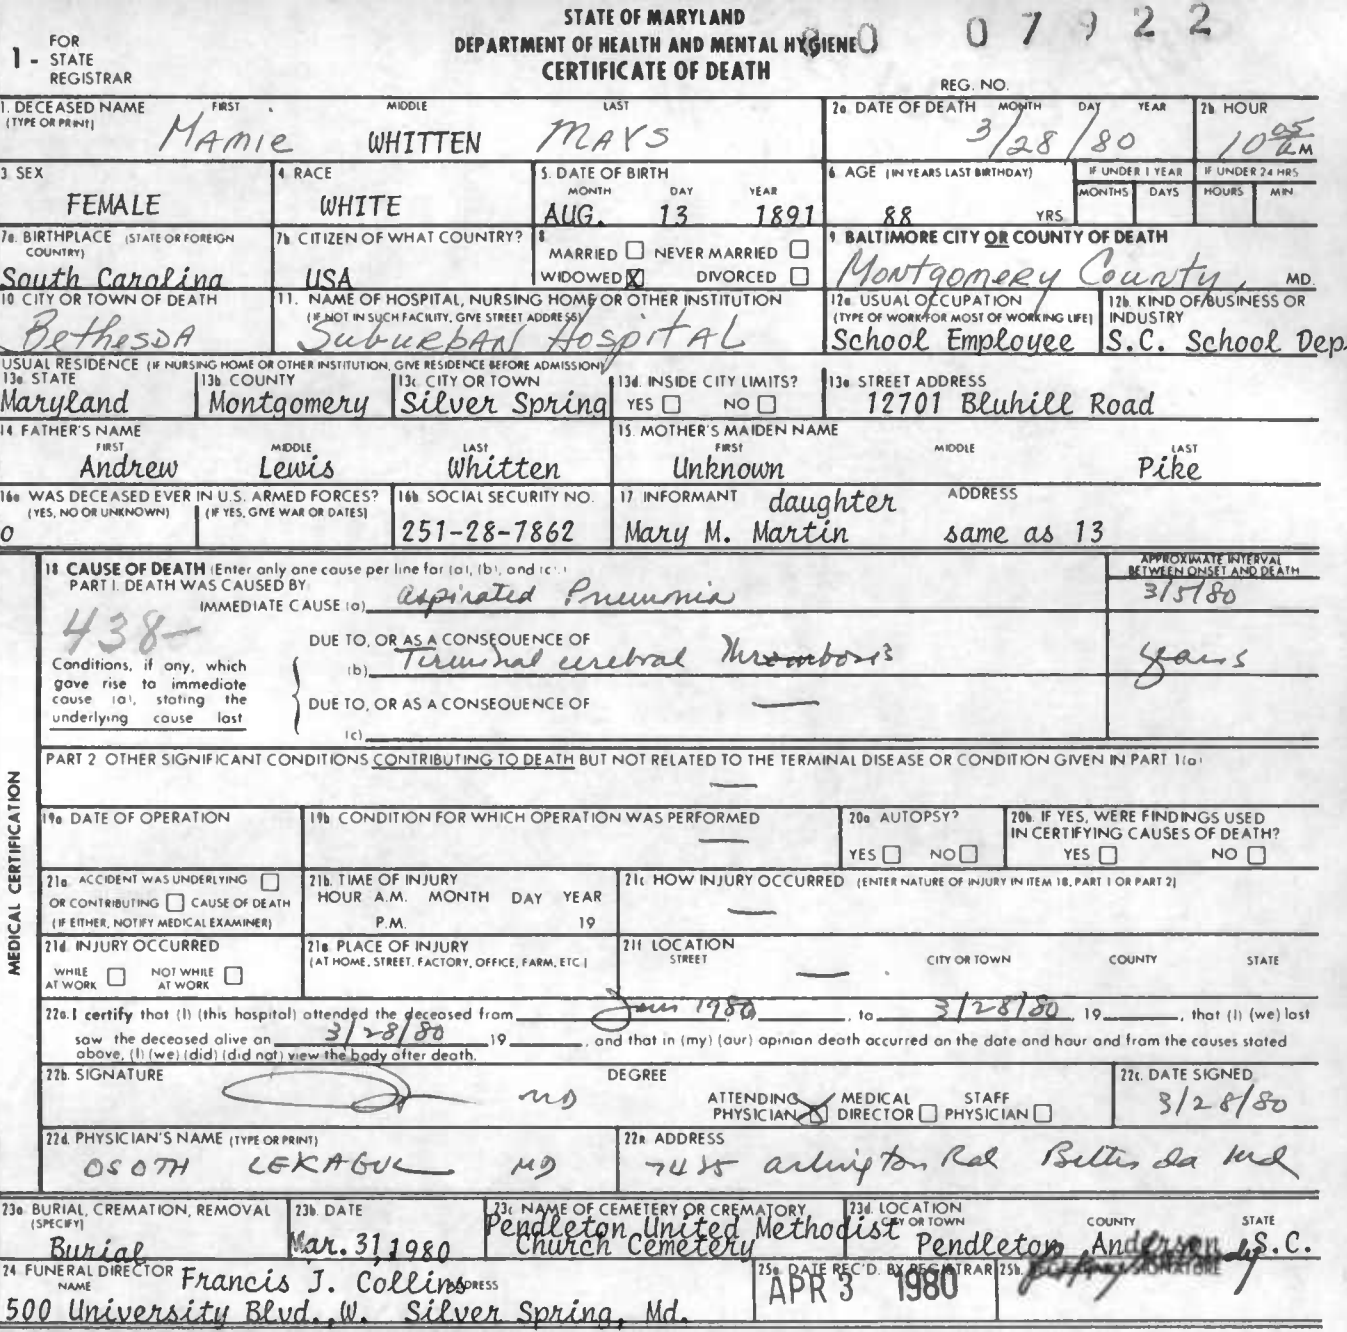 STATE OF MARYLAND
DEPARTMENT OF HEALTH AND MENTAL HYGIENE
CERTIFICATE OF DEATH
80 07922
1 - FOR STATE REGISTRAR
REG. NO.
1. DECEASED NAME (TYPE OR PRINT) FIRST MIDDLE LAST
Mamie WHITTEN MAYS
2a DATE OF DEATH MONTH DAY YEAR
3/28/80
2b HOUR
10 05 a M
3 SEX
FEMALE
4 RACE
WHITE
5. DATE OF BIRTH MONTH DAY YEAR
AUG. 13 1891
6. AGE (IN YEARS LAST BIRTHDAY)
88 YRS.
IF UNDER 1 YEAR MONTHS DAYS
IF UNDER 24 HRS HOURS MIN.
7a. BIRTHPLACE (STATE OR FOREIGN COUNTRY)
South Carolina
7b CITIZEN OF WHAT COUNTRY?
USA
8 MARRIED NEVER MARRIED
WIDOWED X DIVORCED
9 BALTIMORE CITY OR COUNTY OF DEATH
Montgomery County, MD.
10 CITY OR TOWN OF DEATH
Bethesda
11. NAME OF HOSPITAL, NURSING HOME OR OTHER INSTITUTION
(IF NOT IN SUCH FACILITY, GIVE STREET ADDRESS)
Suburban Hospital
12a. USUAL OCCUPATION
(TYPE OF WORK FOR MOST OF WORKING LIFE)
School Employee
12b. KIND OF BUSINESS OR INDUSTRY
S.C. School Dep
USUAL RESIDENCE (IF NURSING HOME OR OTHER INSTITUTION, GIVE RESIDENCE BEFORE ADMISSION)
13a STATE
Maryland
13b COUNTY
Montgomery
13c CITY OR TOWN
Silver Spring
13d. INSIDE CITY LIMITS?
YES NO
13e STREET ADDRESS
12701 Bluhill Road
14 FATHER'S NAME FIRST MIDDLE LAST
Andrew Lewis Whitten
15. MOTHER'S MAIDEN NAME FIRST MIDDLE LAST
Unknown Pike
16a WAS DECEASED EVER IN U.S. ARMED FORCES?
(YES, NO OR UNKNOWN) (IF YES, GIVE WAR OR DATES)
o
16b SOCIAL SECURITY NO.
251-28-7862
17 INFORMANT daughter ADDRESS
Mary M. Martin same as 13
MEDICAL CERTIFICATION
18 CAUSE OF DEATH (Enter only one cause per line for (a), (b), and (c).)
APPROXIMATE INTERVAL BETWEEN ONSET AND DEATH
PART I. DEATH WAS CAUSED BY:
IMMEDIATE CAUSE (a) aspirated Pneumonia 3/5/80
438-
DUE TO, OR AS A CONSEQUENCE OF
(b) Terminal cerebral Thrombosis years
Conditions, if any, which
gave rise to immediate
cause (a), stating the
underlying cause last
DUE TO, OR AS A CONSEQUENCE OF —
(c)
PART 2 OTHER SIGNIFICANT CONDITIONS CONTRIBUTING TO DEATH BUT NOT RELATED TO THE TERMINAL DISEASE OR CONDITION GIVEN IN PART 1(a)
—
19a DATE OF OPERATION
19b CONDITION FOR WHICH OPERATION WAS PERFORMED
—
20a AUTOPSY?
YES NO
20b. IF YES, WERE FINDINGS USED
IN CERTIFYING CAUSES OF DEATH?
YES NO
21a. ACCIDENT WAS UNDERLYING
OR CONTRIBUTING CAUSE OF DEATH
(IF EITHER, NOTIFY MEDICAL EXAMINER)
21b. TIME OF INJURY
HOUR A.M. MONTH DAY YEAR
P.M. 19
21c HOW INJURY OCCURRED (ENTER NATURE OF INJURY IN ITEM 18, PART 1 OR PART 2)
—
21d. INJURY OCCURRED
WHILE AT WORK NOT WHILE AT WORK
21e. PLACE OF INJURY
(AT HOME, STREET, FACTORY, OFFICE, FARM, ETC.)
21f LOCATION
STREET CITY OR TOWN COUNTY STATE
—
22a. I certify that (I) (this hospital) attended the deceased from Jan 1980, to 3/28/80, 19, that (I) (we) last
saw the deceased alive on 3/28/80 19, and that in (my) (our) opinion death occurred on the date and hour and from the causes stated
above, (I) (we) (did) (did not) view the body after death.
22b. SIGNATURE DEGREE
MD
ATTENDING PHYSICIAN X MEDICAL DIRECTOR STAFF PHYSICIAN
22c. DATE SIGNED
3/28/80
22d. PHYSICIAN'S NAME (TYPE OR PRINT)
OSOTH LEKAGUL MD
22e ADDRESS
7425 Arlington Rd Bethesda Md
23a BURIAL, CREMATION, REMOVAL (SPECIFY)
Burial
23b. DATE
Mar. 31, 1980
23c NAME OF CEMETERY OR CREMATORY
Pendleton United Methodist
Church Cemetery
23d. LOCATION CITY OR TOWN COUNTY STATE
Pendleton, Anderson, S.C.
24 FUNERAL DIRECTOR NAME ADDRESS
Francis J. Collins
500 University Blvd., W. Silver Spring, Md.
25a DATE REC'D. BY REGISTRAR
APR 3 1980
25b. REGISTRAR'S SIGNATURE